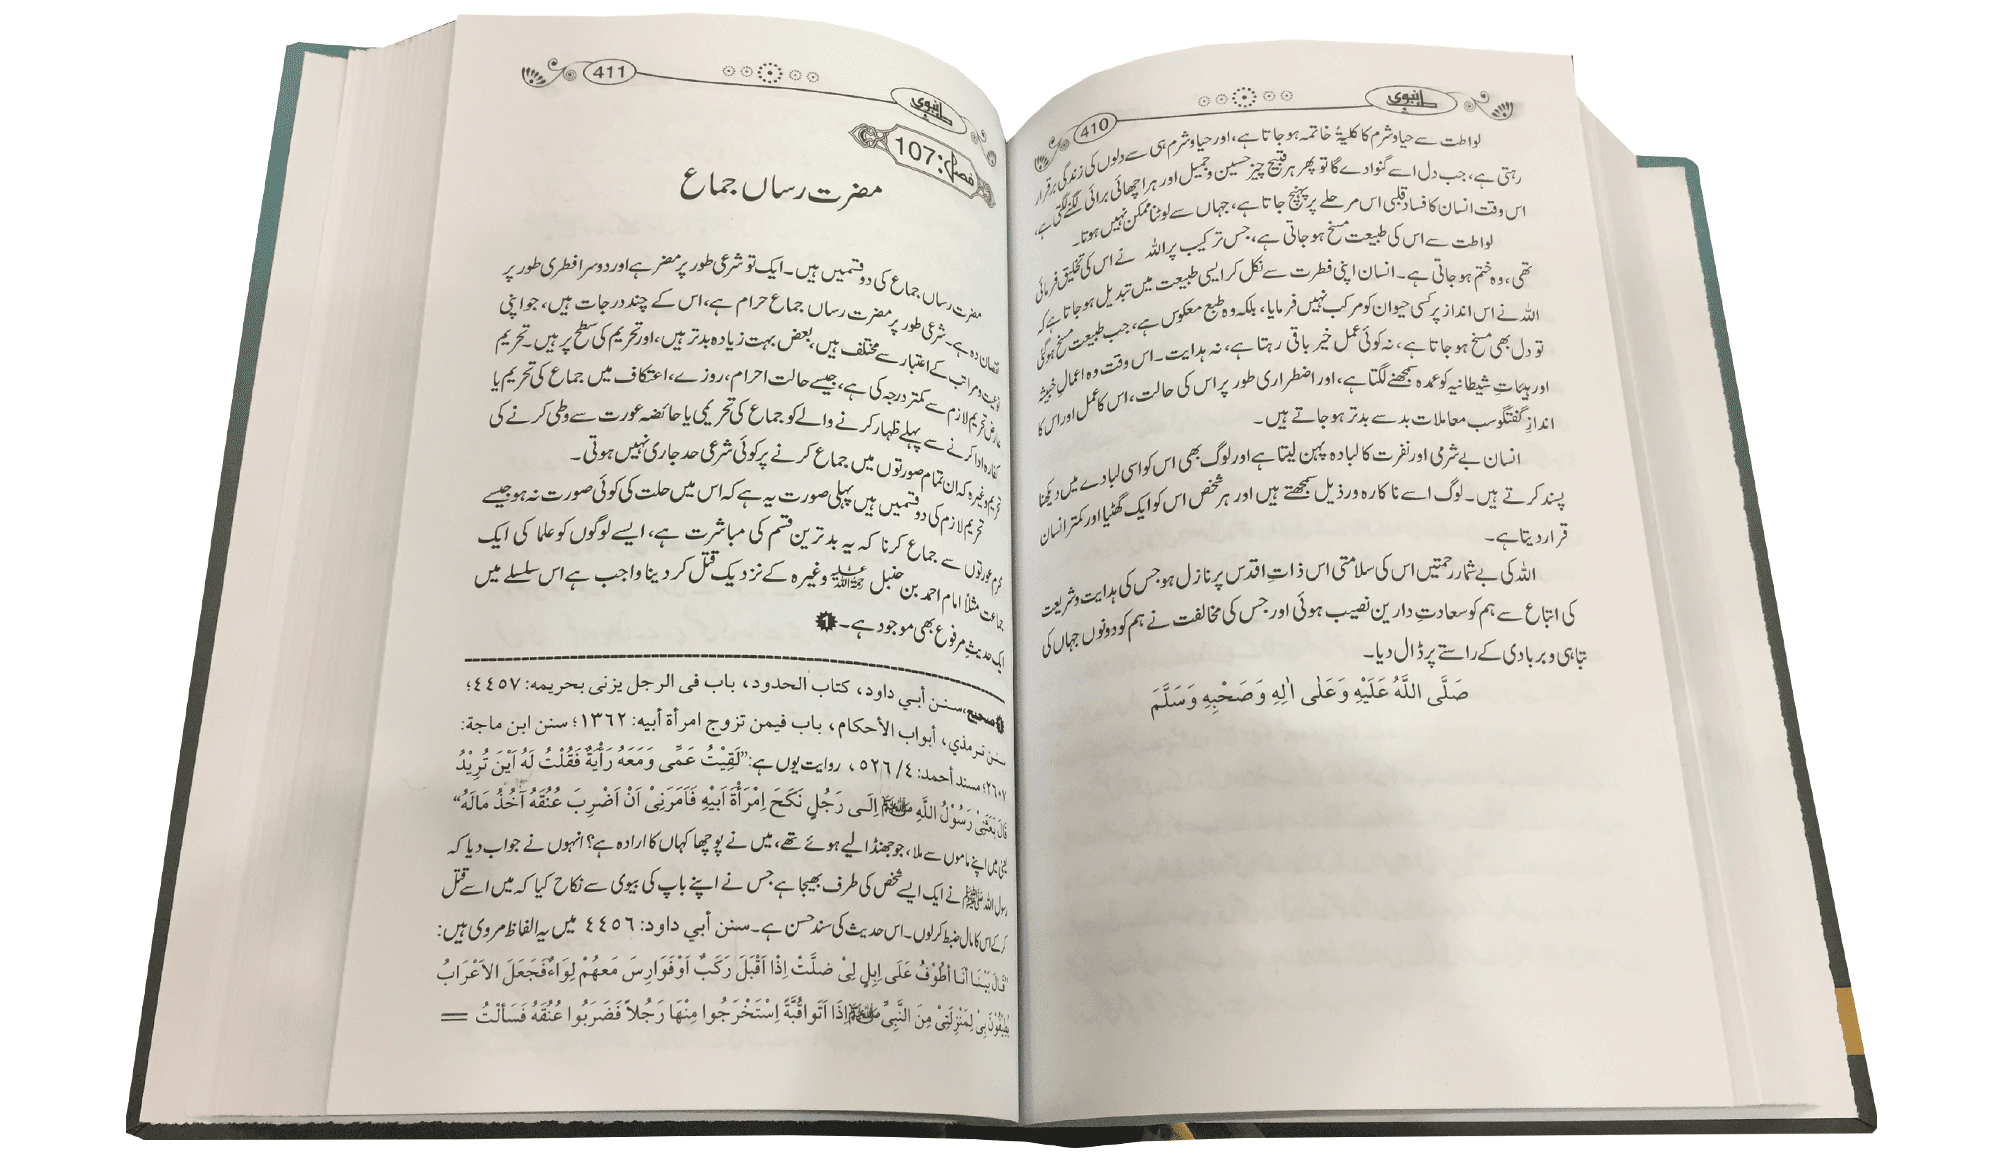 طب نبوی
410
لواطت سے حیا و شرم کا کلیۃً خاتمہ ہو جاتا ہے، اور حیا و شرم ہی سے دلوں کی زندگی برقرار
رہتی ہے، جب دل اسے گنوا دے گا تو پھر ہر قبیح چیز حسین و جمیل اور ہر اچھائی برائی لگنے لگتی ہے،
اس وقت انسان کا فساد قلبی اس مرحلے پر پہنچ جاتا ہے، جہاں سے لوٹنا ممکن نہیں ہوتا۔
لواطت سے اس کی طبیعت مسخ ہو جاتی ہے، جس ترکیب پر اللہ نے اس کی تخلیق فرمائی
تھی، وہ ختم ہو جاتی ہے۔ انسان اپنی فطرت سے نکل کر ایسی طبیعت میں تبدیل ہو جاتا ہے کہ
اللہ نے اس انداز پر کسی حیوان کو مرکب نہیں فرمایا، بلکہ وہ طبع معکوس ہے، جب طبیعت مسخ ہو گئی
تو دل بھی مسخ ہو جاتا ہے، نہ کوئی عمل خیر باقی رہتا ہے، نہ ہدایت۔ اس وقت وہ اعمالِ خبیثہ
اور ہیئاتِ شیطانیہ کو عمدہ سمجھنے لگتا ہے، اور اضطراری طور پر اس کی حالت، اس کا عمل اور اس کا
اندازِ گفتگو سب معاملات بد سے بدتر ہو جاتے ہیں۔
انسان بے شرمی اور نفرت کا لبادہ پہن لیتا ہے اور لوگ بھی اس کو اسی لبادے میں دیکھنا
پسند کرتے ہیں۔ لوگ اسے ناکارہ و رذیل سمجھتے ہیں اور ہر شخص اس کو ایک گھٹیا اور کمتر انسان
قرار دیتا ہے۔
اللہ کی بے شمار رحمتیں اس کی سلامتی اس ذاتِ اقدس پر نازل ہو جس کی ہدایت و شریعت
کی اتباع سے ہم کو سعادتِ دارین نصیب ہوئی اور جس کی مخالفت نے ہم کو دونوں جہاں کی
تباہی و بربادی کے راستے پر ڈال دیا۔
صَلَّى اللَّهُ عَلَيْهِ وَعَلٰى اٰلِهِ وَصَحْبِهِ وَسَلَّمَ
طب نبوی
411
فصل: 107
مضرت رساں جماع
مضرت رساں جماع کی دو قسمیں ہیں۔ ایک تو شرعی طور پر مضر ہے اور دوسرا فطری طور پر
نقصان دہ ہے۔ شرعی طور پر مضرت رساں جماع حرام ہے، اس کے چند درجات ہیں، جو اپنی
نوعیت و مراتب کے اعتبار سے مختلف ہیں، بعض بہت زیادہ بدتر ہیں، اور تحریم کی سطح پر ہیں۔ تحریم
عارض تحریم لازم سے کمتر درجہ کی ہے، جیسے حالت احرام، روزے، اعتکاف میں جماع کی تحریم یا
کفارہ ادا کرنے سے پہلے ظہار کرنے والے کو جماع کی تحریمی یا حائضہ عورت سے وطی کرنے کی
تحریم وغیرہ کہ ان تمام صورتوں میں جماع کرنے پر کوئی شرعی حد جاری نہیں ہوتی۔
تحریم لازم کی دو قسمیں ہیں پہلی صورت یہ ہے کہ اس میں حلت کی کوئی صورت نہ ہو جیسے
محرم عورتوں سے جماع کرنا کہ یہ بدترین قسم کی مباشرت ہے، ایسے لوگوں کو علما کی ایک
جماعت مثلاً امام احمد بن حنبل رحمۃ اللہ علیہ وغیرہ کے نزدیک قتل کر دینا واجب ہے اس سلسلے میں
ایک حدیثِ مرفوع بھی موجود ہے۔ 1
1 صحيح، سنن أبي داود، كتاب الحدود، باب فى الرجل يزنى بحريمه: ٤٤٥٧؛
سنن ترمذي، أبواب الأحكام، باب فيمن تزوج امرأة أبيه: ١٣٦٢؛ سنن ابن ماجة:
٢٦٠٧؛ مسند أحمد: ٤/ ٥٢٦، روایت یوں ہے: ”لَقِيْتُ عَمِّى وَمَعَهُ رَأْيَةٌ فَقُلْتُ لَهُ اَيْنَ تُرِيْدُ
قَالَ بَعَثَنِيْ رَسُوْلُ اللَّهِ ﷺ اِلَى رَجُلٍ نَكَحَ اِمْرَأَةَ اَبِيْهِ فَاَمَرَنِيْ اَنْ اَضْرِبَ عُنُقَهُ آخُذُ مَالَهُ“
یعنی میں اپنے ماموں سے ملا، جو جھنڈا لیے ہوئے تھے، میں نے پوچھا کہاں کا ارادہ ہے؟ انہوں نے جواب دیا کہ
رسول اللہ ﷺ نے ایک ایسے شخص کی طرف بھیجا ہے جس نے اپنے باپ کی بیوی سے نکاح کیا کہ میں اسے قتل
کر کے اس کا مال ضبط کر لوں۔ اس حدیث کی سند حسن ہے۔ سنن أبي داود: ٤٤٥٦ میں یہ الفاظ مروی ہیں:
”قَالَ بَيْنَا أَنَا أَطُوْفُ عَلَى اِبِلٍ لِيْ ضَلَّتْ اِذْا اَقْبَلَ رَكَبٌ اَوْ فَوَارِسَ مَعَهُمْ لِوَاءٌ فَجَعَلَ الاَعْرَابُ
يُطِيْفُوْنَ بِيْ لِمَنْزِلَتِيْ مِنَ النَّبِيِّ ﷺ اِذَا اَتَوا قُبَّةً اِسْتَخْرَجُوا مِنْهَا رَجُلاً فَضَرَبُوا عُنُقَهُ فَسَأَلْتُ =